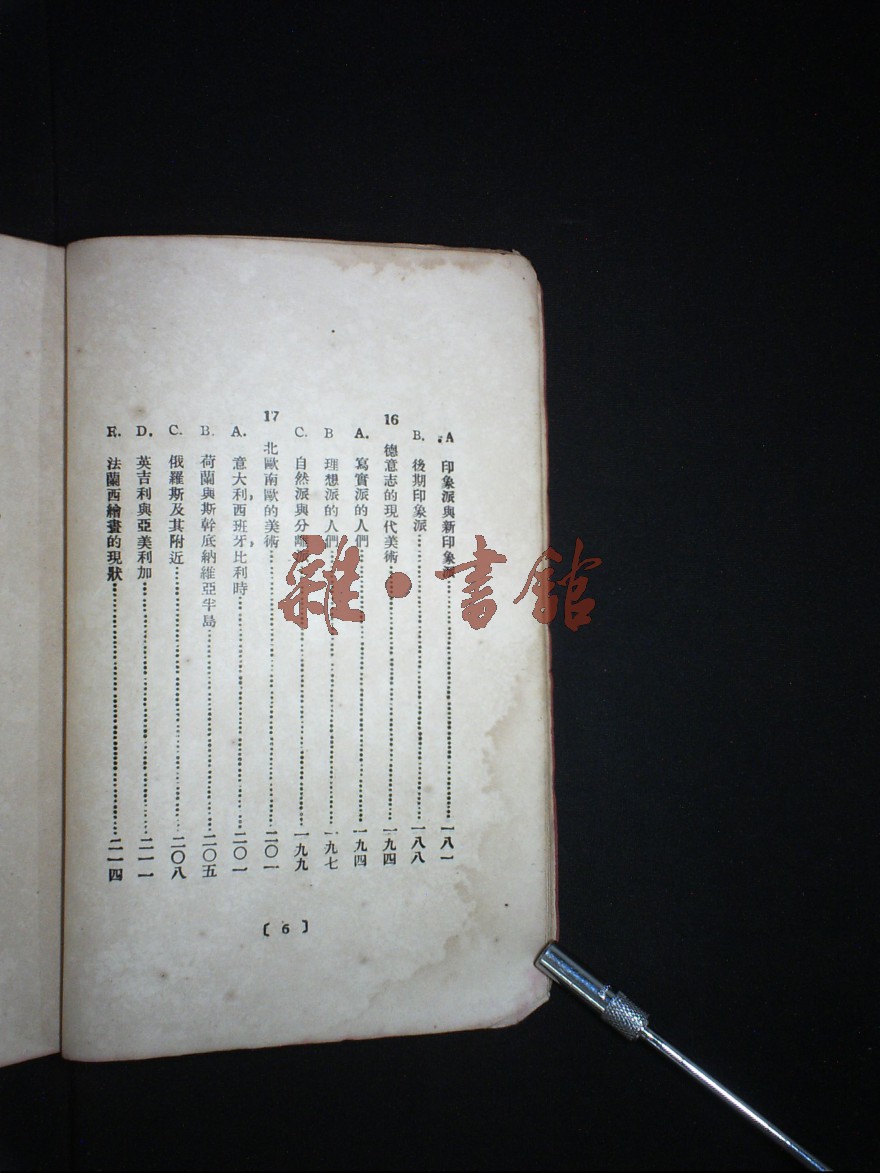 A 印象派與新印象派……一八一
B. 後期印象派……一八八
16 德意志的現代美術……一九四
A. 寫實派的人們……一九四
B 理想派的人們……一九七
C. 自然派與分離派……一九九
17 北歐南歐的美術……二〇一
A. 意大利，西班牙，比利時……二〇一
B. 荷蘭與斯幹底納維亞半島……二〇五
C. 俄羅斯及其附近……二〇八
D. 英吉利與亞美利加……二一一
E. 法蘭西繪畫的現狀……二一四
〔6〕
雜·書館